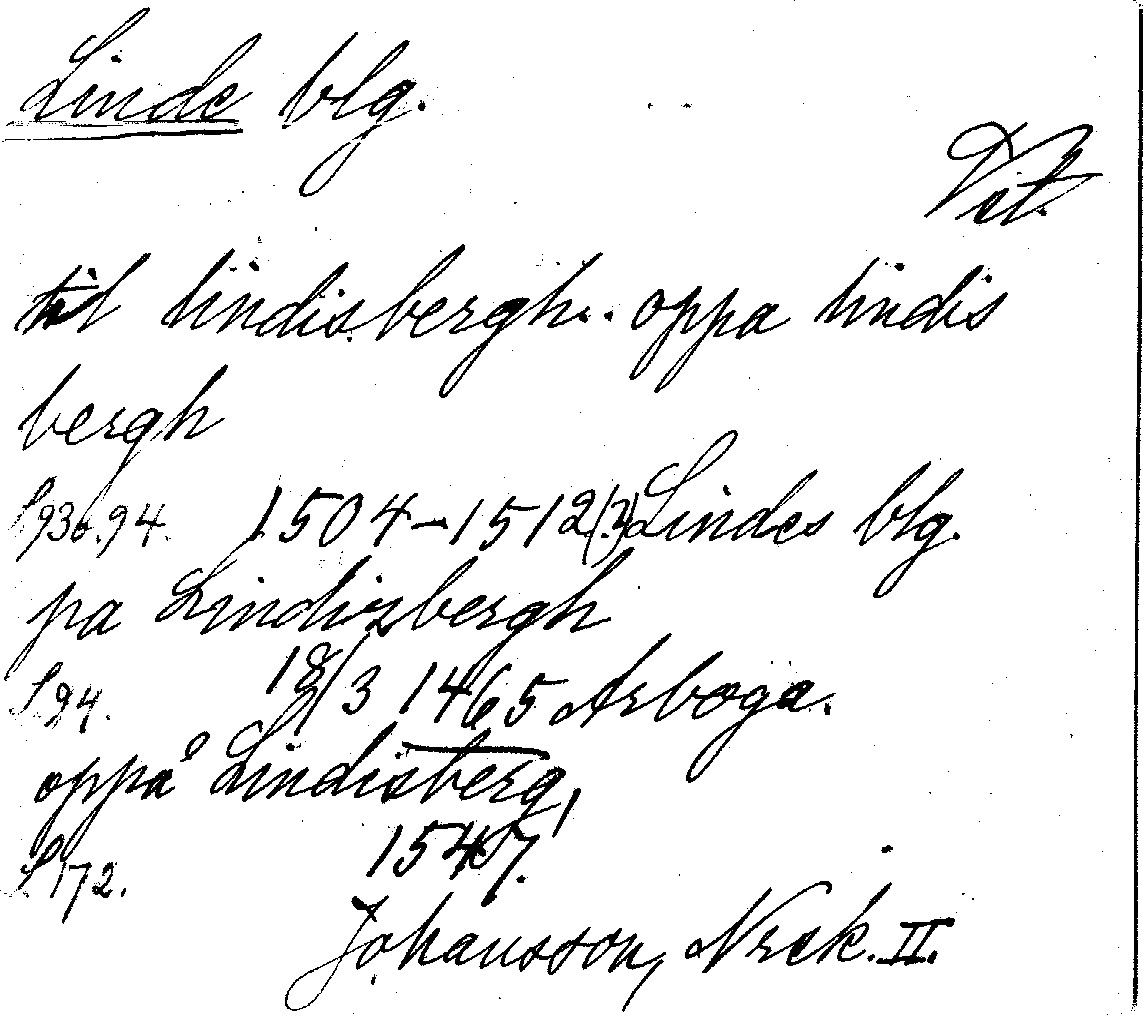 Linde blg.
Vst.
til lindisbergh.. oppa lindis
bergh
S 93 o. 94. 1504–1512(?) Lindes blg.
pa Lindisbergh
S 94. 18/3 1465 Arboga.
oppå Lindisberg,
S 172. 1547.
Johansson, Nrek. II.